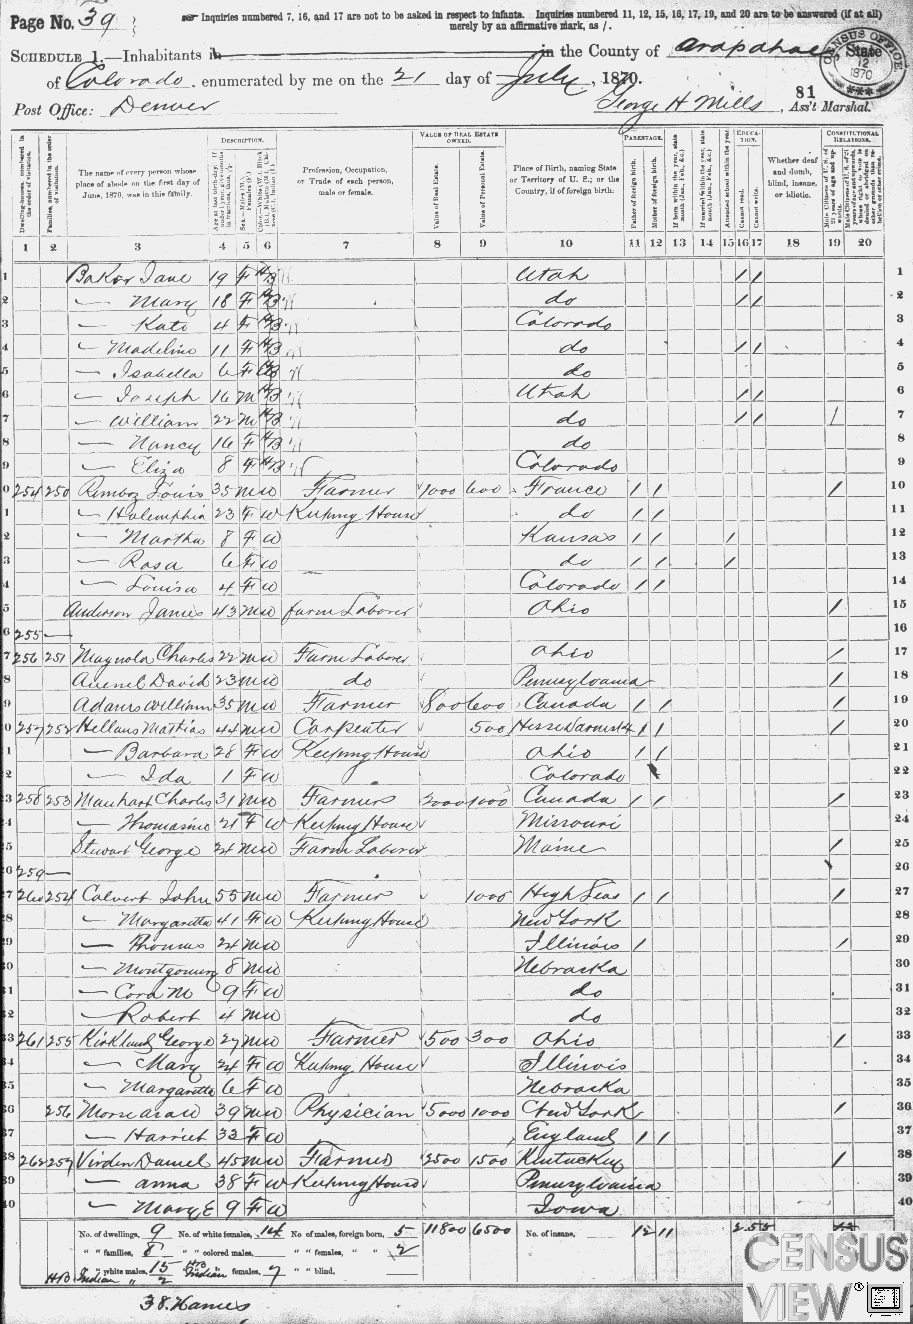 Page No. 39
Inquiries numbered 7, 16, and 17 are not to be asked in respect to infants. Inquiries numbered 11, 12, 15, 16, 17, 19, and 20 are to be answered (if at all)
merely by an affirmative mark, as /.
SCHEDULE 1.—Inhabitants in in the County of Arapahoe, State
of Colorado, enumerated by me on the 21 day of July, 1870.
CENSUS OFFICE 12 1870
81
Post Office: Denver George H Mills, Ass't Marshal.
Dwelling-houses, numbered in the order of visitation.
Families, numbered in the order of visitation.
The name of every person whose place of abode on the first day of June, 1870, was in this family.
DESCRIPTION.
Profession, Occupation, or Trade of each person, male or female.
VALUE OF REAL ESTATE OWNED.
Value of Real Estate.
Value of Personal Estate.
Place of Birth, naming State or Territory of U. S.; or the Country, if of foreign birth.
PARENTAGE.
Father of foreign birth.
Mother of foreign birth.
If born within the year, state month (Jan., Feb., &c.)
If married within the year, state month (Jan., Feb., &c.)
Attended school within the year.
EDUCATION.
Cannot read.
Cannot write.
Whether deaf and dumb, blind, insane, or idiotic.
CONSTITUTIONAL RELATIONS.
1 2 3 4 5 6 7 8 9 10 11 12 13 14 15 16 17 18 19 20
1 Baker Jane 19 F HB Utah / / 1
2 — Mary 18 F HB do / / 2
3 — Kate 4 F HB Colorado 3
4 — Madeline 11 F HB do / / 4
5 — Isabella 6 F HB do 5
6 — Joseph 16 M HB Utah / / 6
7 — William 22 M HB do / / / 7
8 — Nancy 16 F HB do 8
9 — Eliza 8 F HB Colorado 9
0 254 250 Louis 35 M W Farmer 1000 600 France / / / 10
1 — 23 F W Keeping House do / / 11
2 — Martha 8 F W Kansas / / / 12
3 — Rosa 6 F W do / / / 13
4 — Louisa 4 F W Colorado / / 14
5 Anderson James 43 M W Farm Laborer Ohio / 15
6 255 — 16
7 256 251 Magnola Charles 22 M W Farm Laborer Ohio / 17
8 David 23 M W do Pennsylvania / 18
9 Adams William 35 M W Farmer 800 600 Canada / / / 19
0 257 252 Mathias 44 M W Carpenter 500 Hesse Darmstadt / / / 20
1 — Barbara 28 F W Keeping House Ohio / / 21
2 — Ida 1 F W Colorado 22
23 258 253 Manhart Charles 31 M W Farmer 2000 1000 Canada / / / 23
4 — Thomasine 21 F W Keeping House Missouri 24
5 Stewart George 24 M W Farm Laborer Maine / 25
26 259 — 26
27 260 254 Calvert John 55 M W Farmer 1000 High Seas / / / 27
28 — Margaretta 41 F W Keeping House New York 28
29 — Thomas 24 M W Illinois / / 29
30 — Montgomery 8 M W Nebraska 30
31 — Cora M 9 F W do 31
32 — Robert 4 M W do 32
33 261 255 Kirkland George 27 M W Farmer 500 300 Ohio / 33
34 — Mary 24 F W Keeping House Illinois 34
35 — Margaretta 6 F W Nebraska 35
36 256 Morse 39 M W Physician 5000 1000 New York / 36
37 — Harriet 33 F W England / / 37
38 262 257 Virden Daniel 45 M W Farmer 2500 1500 Kentucky / 38
39 — Anna 38 F W Keeping House Pennsylvania 39
40 — Mary E 9 F W Iowa 40
No. of dwellings, 9 No. of white females, 14 No. of males, foreign born, 5 11800 6500 No. of insane, 12 11
" " families, 8 " " colored males, " " females, " " 2
" " white males, 15 HB Indian females, 7 " " blind,
HB Indian " 2
38. Names
CENSUS
VIEW ®